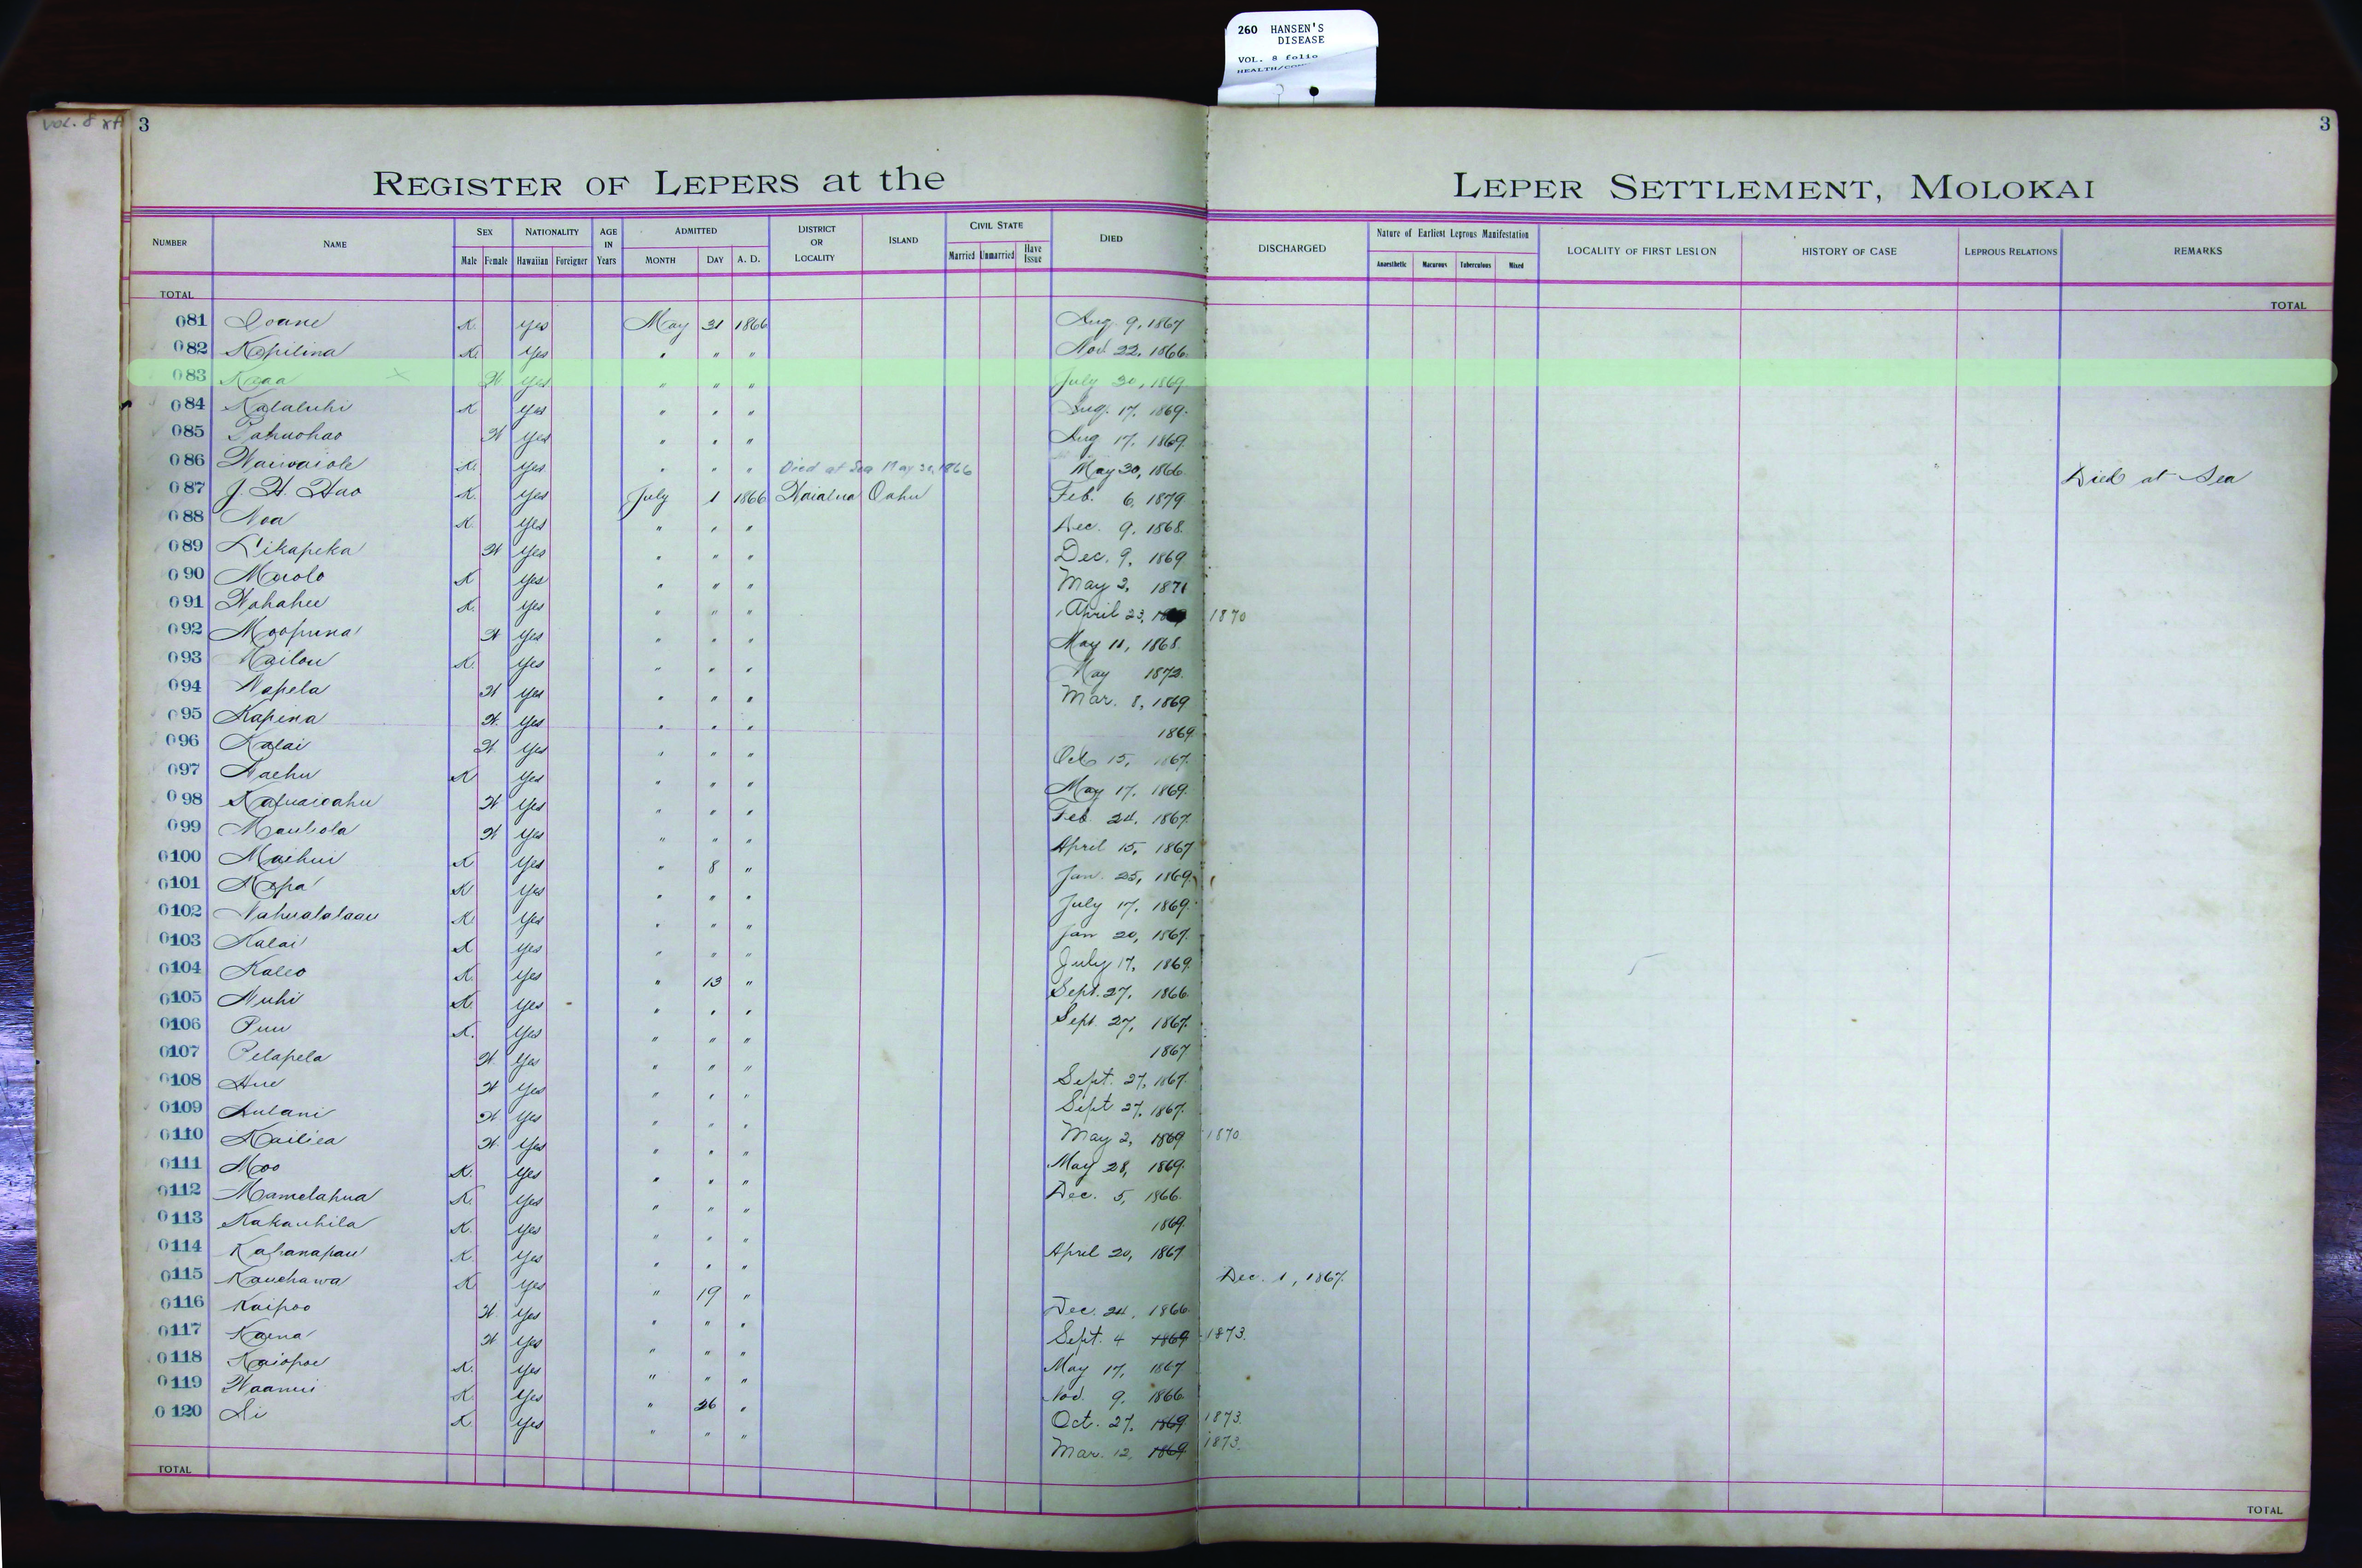 260 HANSEN'S
DISEASE
VOL. 8 folio
VOL. 8
3 3
REGISTER OF LEPERS at the LEPER SETTLEMENT, MOLOKAI
NUMBER NAME SEX Male Female NATIONALITY Hawaiian Foreigner AGE IN Years ADMITTED MONTH DAY A. D. DISTRICT OR LOCALITY ISLAND CIVIL STATE Married Unmarried Have Issue DIED DISCHARGED Nature of Earliest Leprous Manifestation Anaesthetic Macurous Tuberculous Mixed LOCALITY OF FIRST LESION HISTORY OF CASE LEPROUS RELATIONS REMARKS
TOTAL TOTAL
081 Ioane K. Yes May 31 1866 Aug. 9, 1867
082 Kopilina K. Yes " " " Nov. 22, 1866
083 Kaaa x W Yes " " " July 30, 1869
084 Kalaluhi K Yes " " " Aug. 17, 1869.
085 Pahuohao W Yes " " " Aug 17, 1869.
086 Waiwaiole K. Yes " " " Died at Sea May 30, 1866 May 30, 1866. Died at Sea
087 J. H. Hao K. Yes July 1 1866 Waialua Oahu Feb. 6, 1879
088 Noa K. Yes " " " Dec. 9, 1868.
089 Likapeka W Yes " " " Dec. 9, 1869
090 Maolo K Yes " " " May 2, 1871
091 Wahahee K. Yes " " " April 23, 1870
092 Moopuna W Yes " " " May 11, 1868.
093 Kailou K. Yes " " " May 1872.
094 Napela W Yes " " " Mar. 8, 1869
095 Kapina W. Yes " " " 1869.
096 Kalai W. Yes " " " Oct 15, 1867.
097 Naehu K Yes " " " May 17, 1869.
098 W Yes " " " Feb. 24, 1867.
099 Mauliola W Yes " " " April 15, 1867
0100 Maihui K Yes " 8 " Jan. 25, 1869.
0101 Kopa K Yes " " " July 17, 1869.
0102 Nahualalaau K. Yes " " " Jan 20, 1867.
0103 Kalai K Yes " " " July 17, 1869.
0104 Kaleo K. Yes " 13 " Sept. 27, 1866.
0105 Nuhi K. Yes " " " Sept. 27, 1867.
0106 Puu K. Yes " " " 1867
0107 Pelapela W Yes " " " Sept. 27, 1867.
0108 Hue W Yes " " " Sept 27, 1867.
0109 Lulani W Yes " " " May 2, 1869 1870
0110 Kailiea W. Yes " " " May 28, 1869.
0111 Moo K. Yes " " " Dec. 5, 1866.
0112 Mamelahua K. Yes " " " 1869.
0113 Kakauhila K. Yes " " " April 20, 1867
0114 Kahanapau K. Yes " " " Dec. 1, 1867.
0115 Kauehawa K. Yes " 19 " Dec. 24, 1866.
0116 Kaipoo W. Yes " " " Sept. 4 1869 1873.
0117 Kaena W Yes " " " May 17, 1867
0118 Kaiopoe K. Yes " " " Nov. 9, 1866.
0119 Waanui K. Yes " 26 " Oct. 27, 1869 1873.
0120 Li K. Yes " " " Mar. 12, 1869 1873.
TOTAL TOTAL